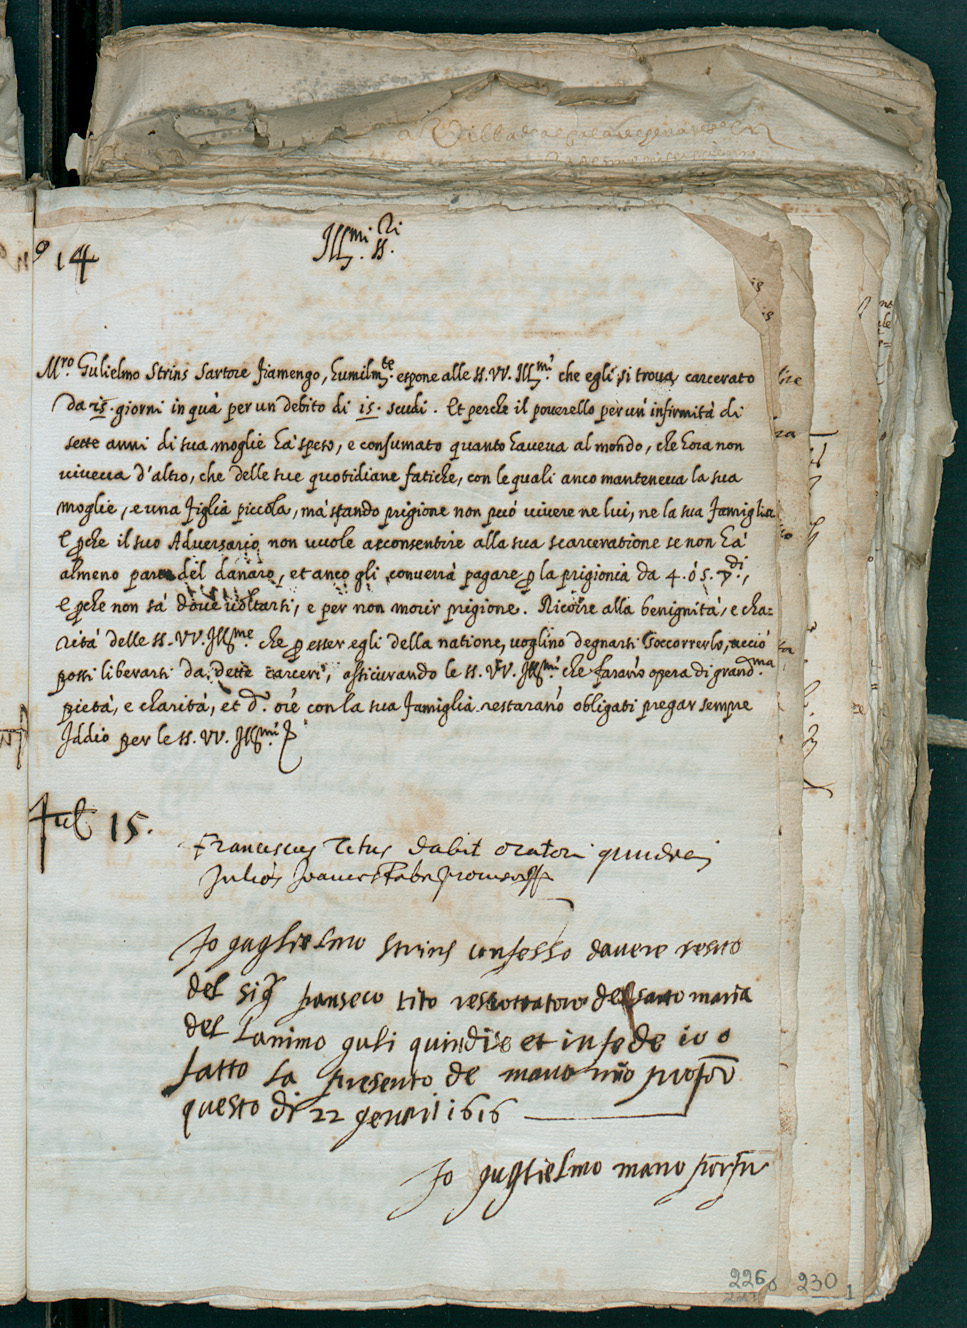 nº 14
Ill.mi SS.ri
M.ro Gulielmo Strins Sartore fiamengo, humilm.te espone alle SS. VV. Ill.mi che egli si trova carcerato
da 15. giorni in quà per un debito di 15. scudi. Et perche il poverello per un' infirmità di
sette anni di sua moglie hà speso, e consumato quanto haveva al mondo, che hora non
viveva d'altro, che delle sue quotidiane fatiche, con le quali anco manteneva la sua
moglie, e una figlia piccola, mà stando prigione non può vivere ne lui, ne la sua famiglia
E p̱che il suo Adversario non vuole acconsentire alla sua scarceratione se non hà
almeno parte del danaro, et anco gli converrà pagare p̱ la prigionia da 4. ó 5. ▽di,
e p̱che non sà dove voltarsi, e per non morir prigione. Ricorre alla benignità, e cha=
rità delle SS. VV. Ill.me che p̱ esser egli della natione, voglino degnarsi soccorrerlo, acciò
possi liberarsi da dette carceri, assicurando le SS. VV. Ill.mi che farano opera di grand.ma
pietà, e charità, et d.º ore con la sua famiglia restarano obligati pregar sempre
Iddio per le SS. VV. Ill.mi
Jul 15.
Franciscus Titus dabit oratori quindeci
Julios Joannes provisor
Io guglielmo Strins confesso davere resuto
del sigr fransesco tito del santo maria
del lanimo guli quindise et in fede io o
fatto la presento de mano mio propor
questo di 22 genari 1616
Io guglielmo mano
226
230
1